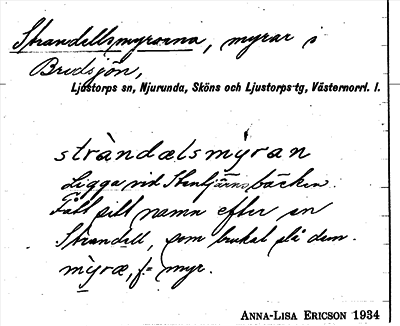 Strandellsmyrarna, myrar i
Bredsjön,
Ljustorps sn, Njurunda, Sköns och Ljustorps tg, Västernorrl. l.
stràndælsmýran
Ligga vid Stentjärnsbäcken.
Fått sitt namn efter en
Strandell, som brukat slå dem.
mỳræ, f. = myr.
ANNA-LISA ERICSON 1934